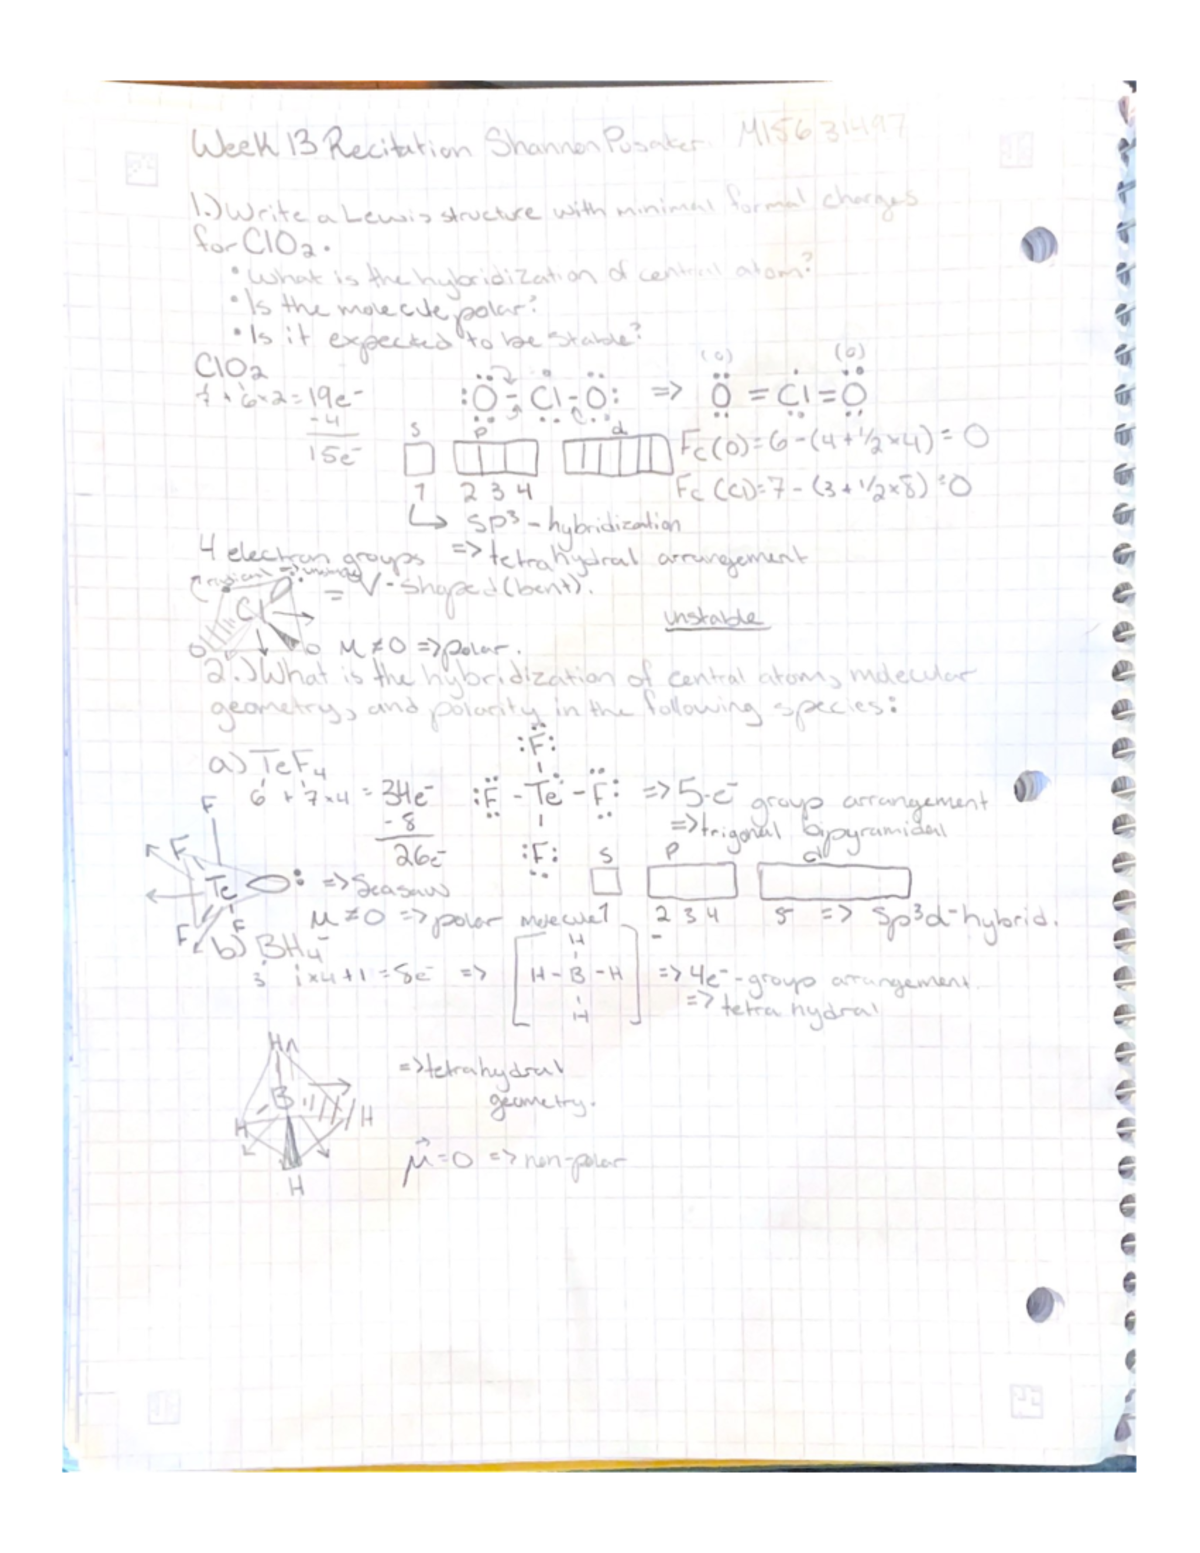 Week 13 Recitation Shannon Pusaker. M15631497
1.) Write a Lewis structure with minimal formal charges
for ClO2.
• What is the hybridization of central atom?
• Is the molecule polar?
• Is it expected to be stable?
ClO2
7 + 6×2 = 19e-
-4
15e-
:O - Cl - O: => O = Cl = O
(0) (0)
s p d
1 2 3 4
Fc(O) = 6 - (4 + 1/2 × 4) = 0
Fc(Cl) = 7 - (3 + 1/2 × 8) = 0
↳ sp3 - hybridization
4 electron groups => tetrahydral arrangement
radical =>
= V - shaped (bent).
Cl
O O
unstable
μ ≠ 0 => polar.
2.) What is the hybridization of central atom, molecular
geometry, and polarity in the following species:
a) TeF4
6 + 7×4 = 34e-
-8
26e-
:F:
:F - Te - F:
:F:
=> 5-e- group arrangement
=> trigonal bipyramidal
s p d
1 2 3 4 5 => sp3d-hybrid.
F
F
Te : => Seasaw
F F
μ ≠ 0 => polar molecule
b) BH4-
3 1×4 + 1 = 8e- =>
H
H - B - H
H
-
=> 4e- - group arrangement
=> tetrahydral
H
B
H H
H
=> tetrahydral
geometry.
μ = 0 => non-polar